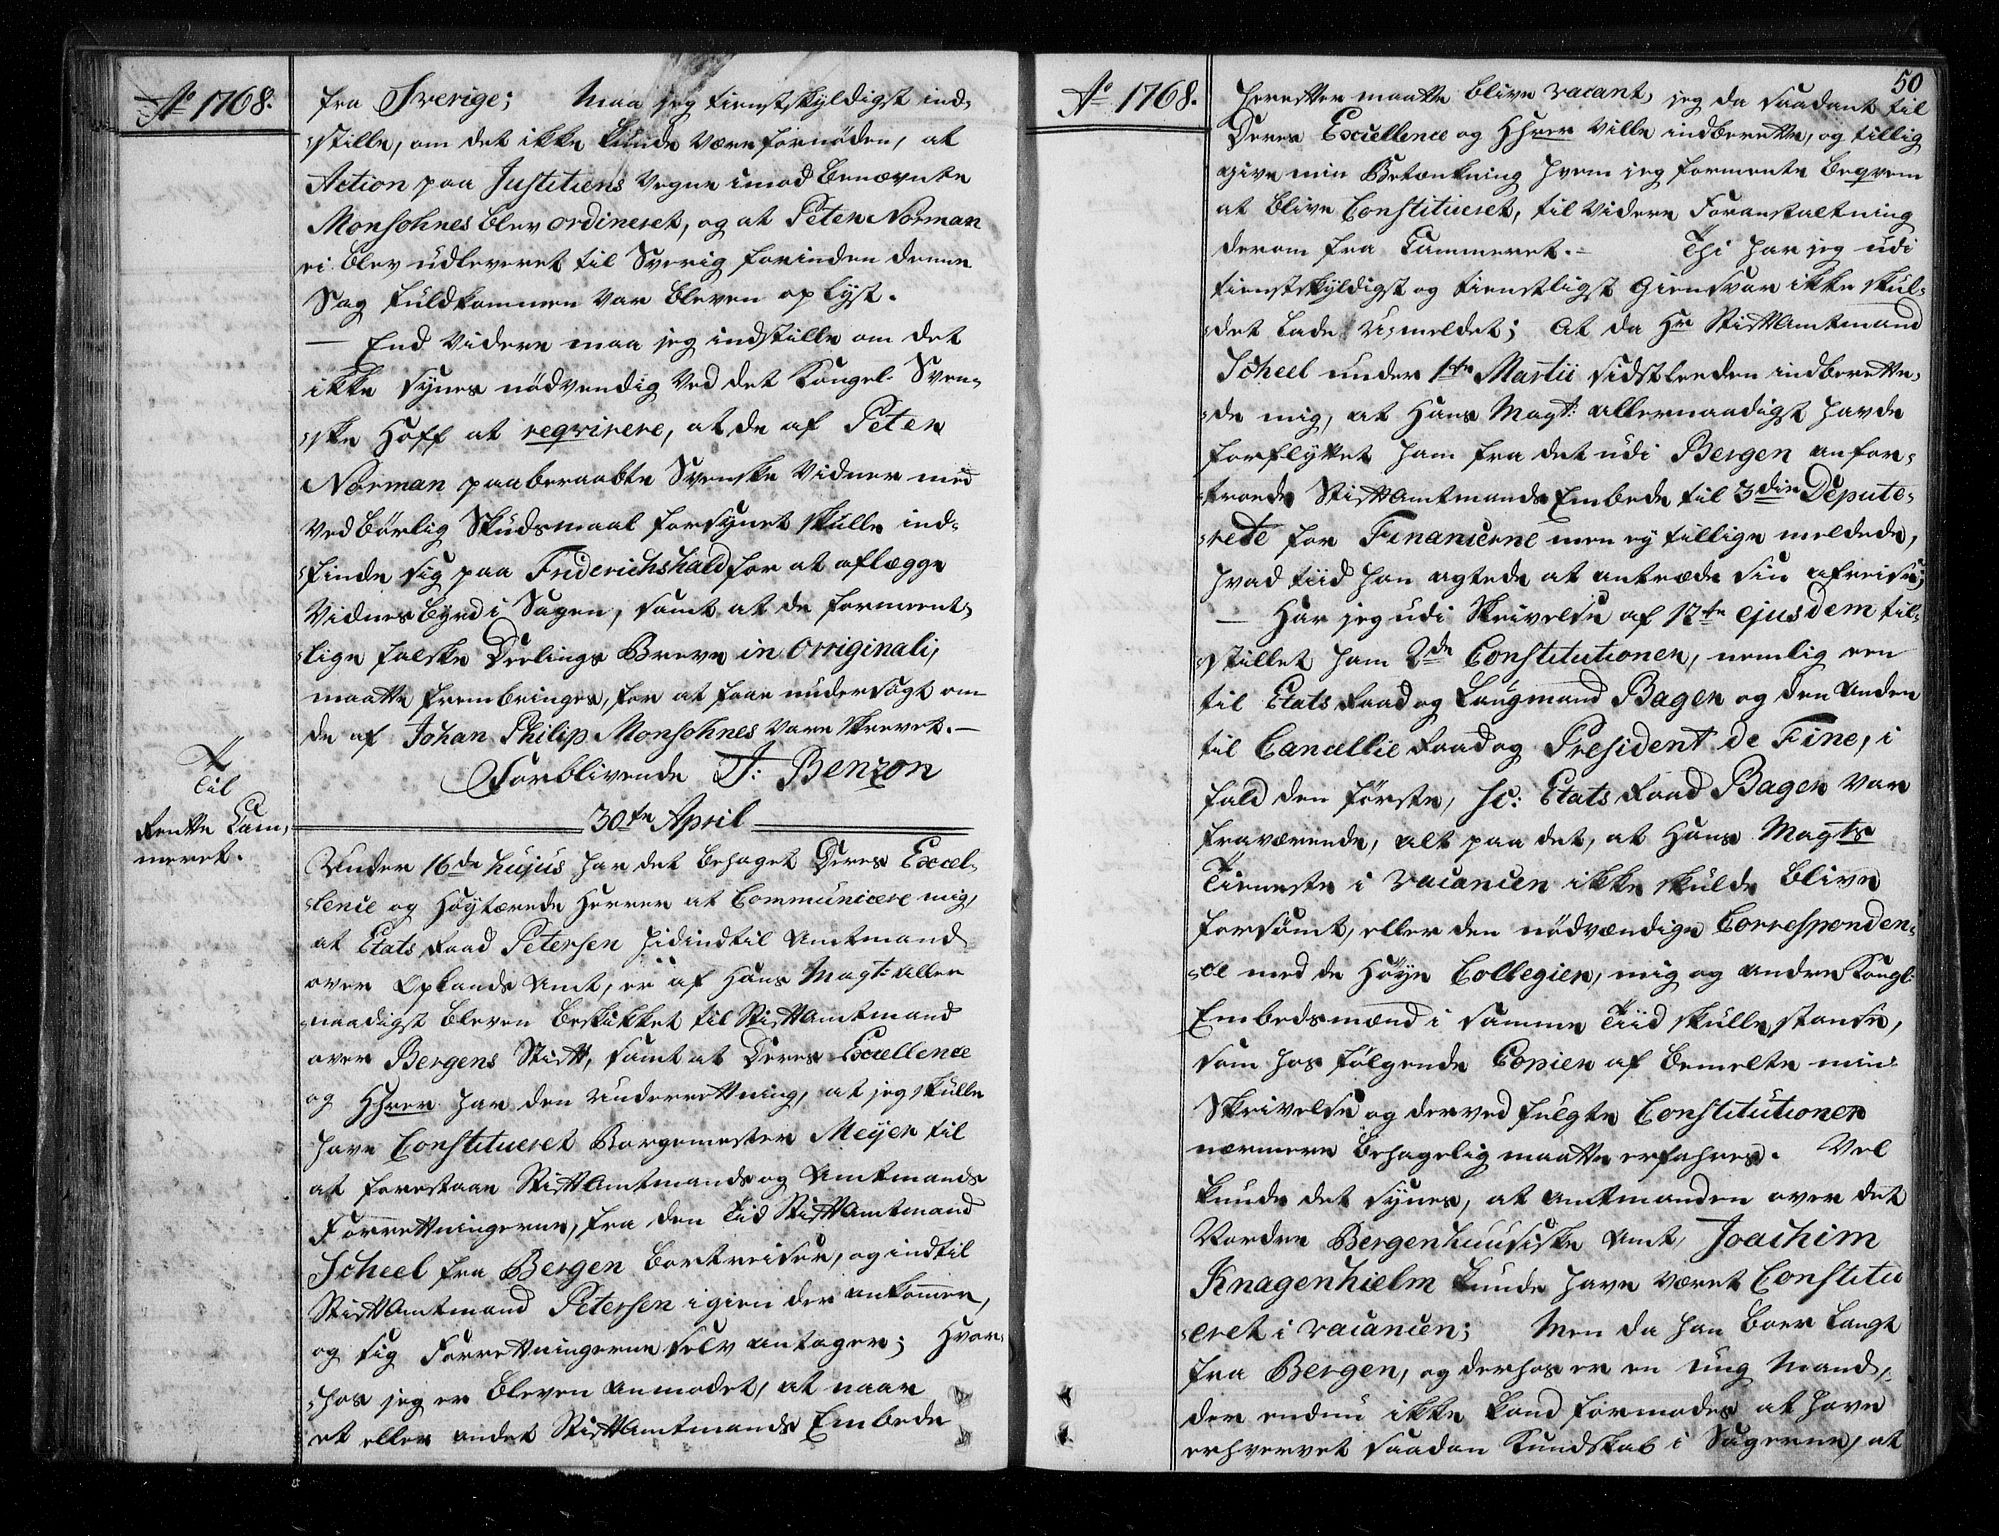 Ao 1768.
fra Sverige; Maa jeg tienstskyldigst ind-
stille, om det ikke kunde være fornöden, at
Action paa Justitiens Vegne imod benævnte
Monsohnes blev ordineret, og at Peter Norman
ei blev udleveret til Sverig forinden denne
Sag fuldkommen var bleven oplyst.
— End videre maa jeg indstille om det
ikke synes nödvendig ved det Kongel. Sven-
-ske Hoff at reqvirere, at de af Peter
Norman paaberaabte Svenske Vidner med
vedbörlig Skudsmaal forsynet skulle ind-
-finde sig paa Friderichshald for at aflægge
Vidnesbyrd i Sagen, samt at de forment-
-lige falske Deelings Breve in originali,
maatte frembringes, for at faae undersögt om
de af Johan Philip Monsohnes vare skrevet.—
Forblivende J: Benzon
30te April
Til
Rentte Cam-
meret.
Under 16de hujus har det behaget Deres Excel-
-lence og Høytærede Herrer at Communicere mig,
at Etats Raad Petersen hidindtil Amtmand
over Oplands Amt, er af Hans Mayt: aller
-naadigst bleven beskikket til Stiftamtmand
over Bergens Stift, samt at Deres Excellence
og HHrer har den Underretning, at jeg skulle
have Constitueret Borgemester Meyer til
at forestaae Stiftamtmands og Amtmands
Forretningerne, fra den Tid Stiftamtmand
Scheel fra Bergen bortreiser, og indtil
Stiftamtmand Petersen igien der ankommer,
og sig Forretningerne selv antager; Hvor-
-hos jeg er bleven anmodet, at naar
et eller andet Stiftamtmands Embede
Ao 1768.
50
herefter maatte blive vacant, jeg da saadant til
Deres Excellence og HHrer ville indberette, og tillig
give min Betænkning hvem jeg formente beqvem
at blive Constitueret, til videre Foranstaltning
derom fra Cammeret.— Thi har jeg udi
tienstskyldigst og tienstligst Giensvar ikke skul-
-det lade u-meldet; At da Hr Stiftamtmand
Scheel under 1ste Martii sidstleeden indberette-
-de mig, at Hans Mayt: allernaadigst havde
forflyttet ham fra det udi Bergen anfor-
-troede Stiftamtmands Embede til 3die Depute-
-rede for Financerne men ey tillige meldede,
hvad tiid han agtede at antræde sin afreise;
— Har jeg udi Skrivelse af 12te ejusdem til-
-stillet ham 2de Constitutioner, nemlig een
til Etats Raad og Laugmand Bager og den anden
til Cancellie Raad og President de Fine, i
fald den förste, sc: Etats Raad Bager var
fraværende, alt paa det, at Hans Mayts
Tieneste i vacancen ikke skulde blive
forsömt, eller den nödvændige Corresponden-
-ce med de Höye Collegier, mig og andre Kongl:
Embedsmænd i samme Tiid skulle stanse,
som hos fölgende Copier af bemelte min
Skrivelse og derved fulgte Constitutioner
nærmere behagelig maatte erfahres. Vel
kunde det synes, at Amtmanden over det
Nordre Bergenhuusiske Amt Joachim
Knagenhielm kunde have været Constitu
-eret i vacancen; Men da han boer langt
fra Bergen, og derhos er en ung Mand,
der endnu ikke kand formodes at have
erhvervet saadan Kundskab i Sagerne, at